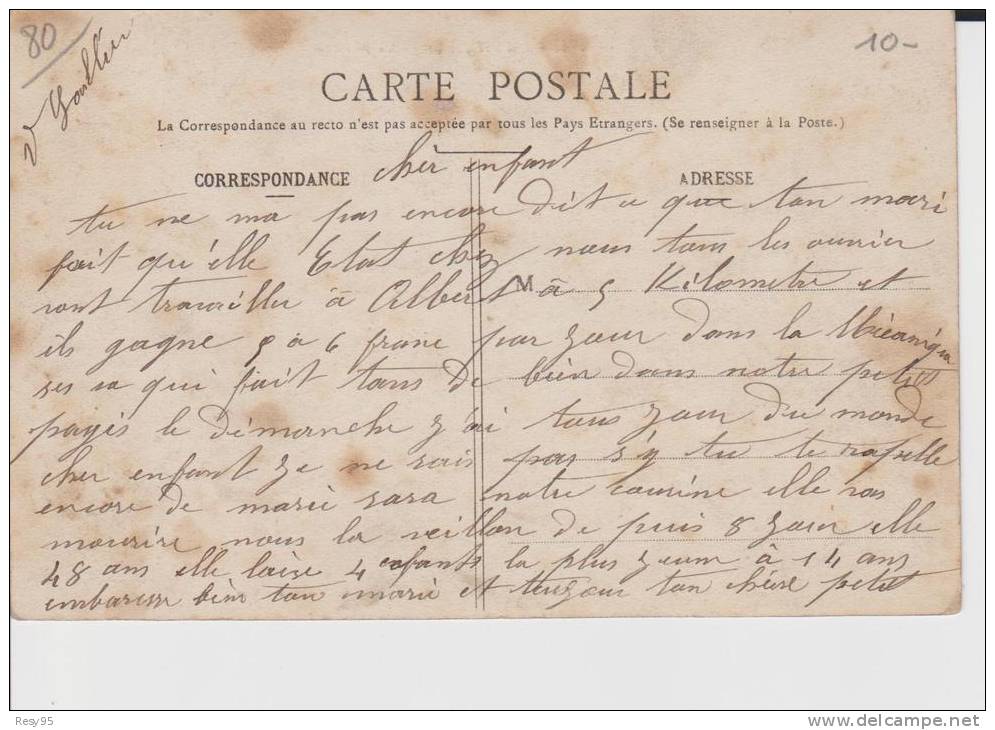 80
10-
CARTE POSTALE
La Correspondance au recto n'est pas acceptée par tous les Pays Etrangers. (Se renseigner à la Poste.)
CORRESPONDANCE
ADRESSE
M
cher enfant
tu ne ma pas encore dit ce que ton mari
fait qu'elle Etat chez nous tous les ouvrier
vont travailler à Albert à 5 Kilometre et
ils gagne 5 à 6 franc par zour dans la Mécanique
ses sa qui fait tans de bien dans notre petit
payis le démanche z'ai tous zour du monde
cher enfant ze ne sais pas s'y tu te rapelle
encore de marie sara notre cousine elle vas
mourire nous la veillon de puis 8 zour elle
48 ans elle laise 4 enfants la plus zeune à 14 ans
embarasse bien ton marie et touzour ton chère petit
Resy95
www.delcampe.net